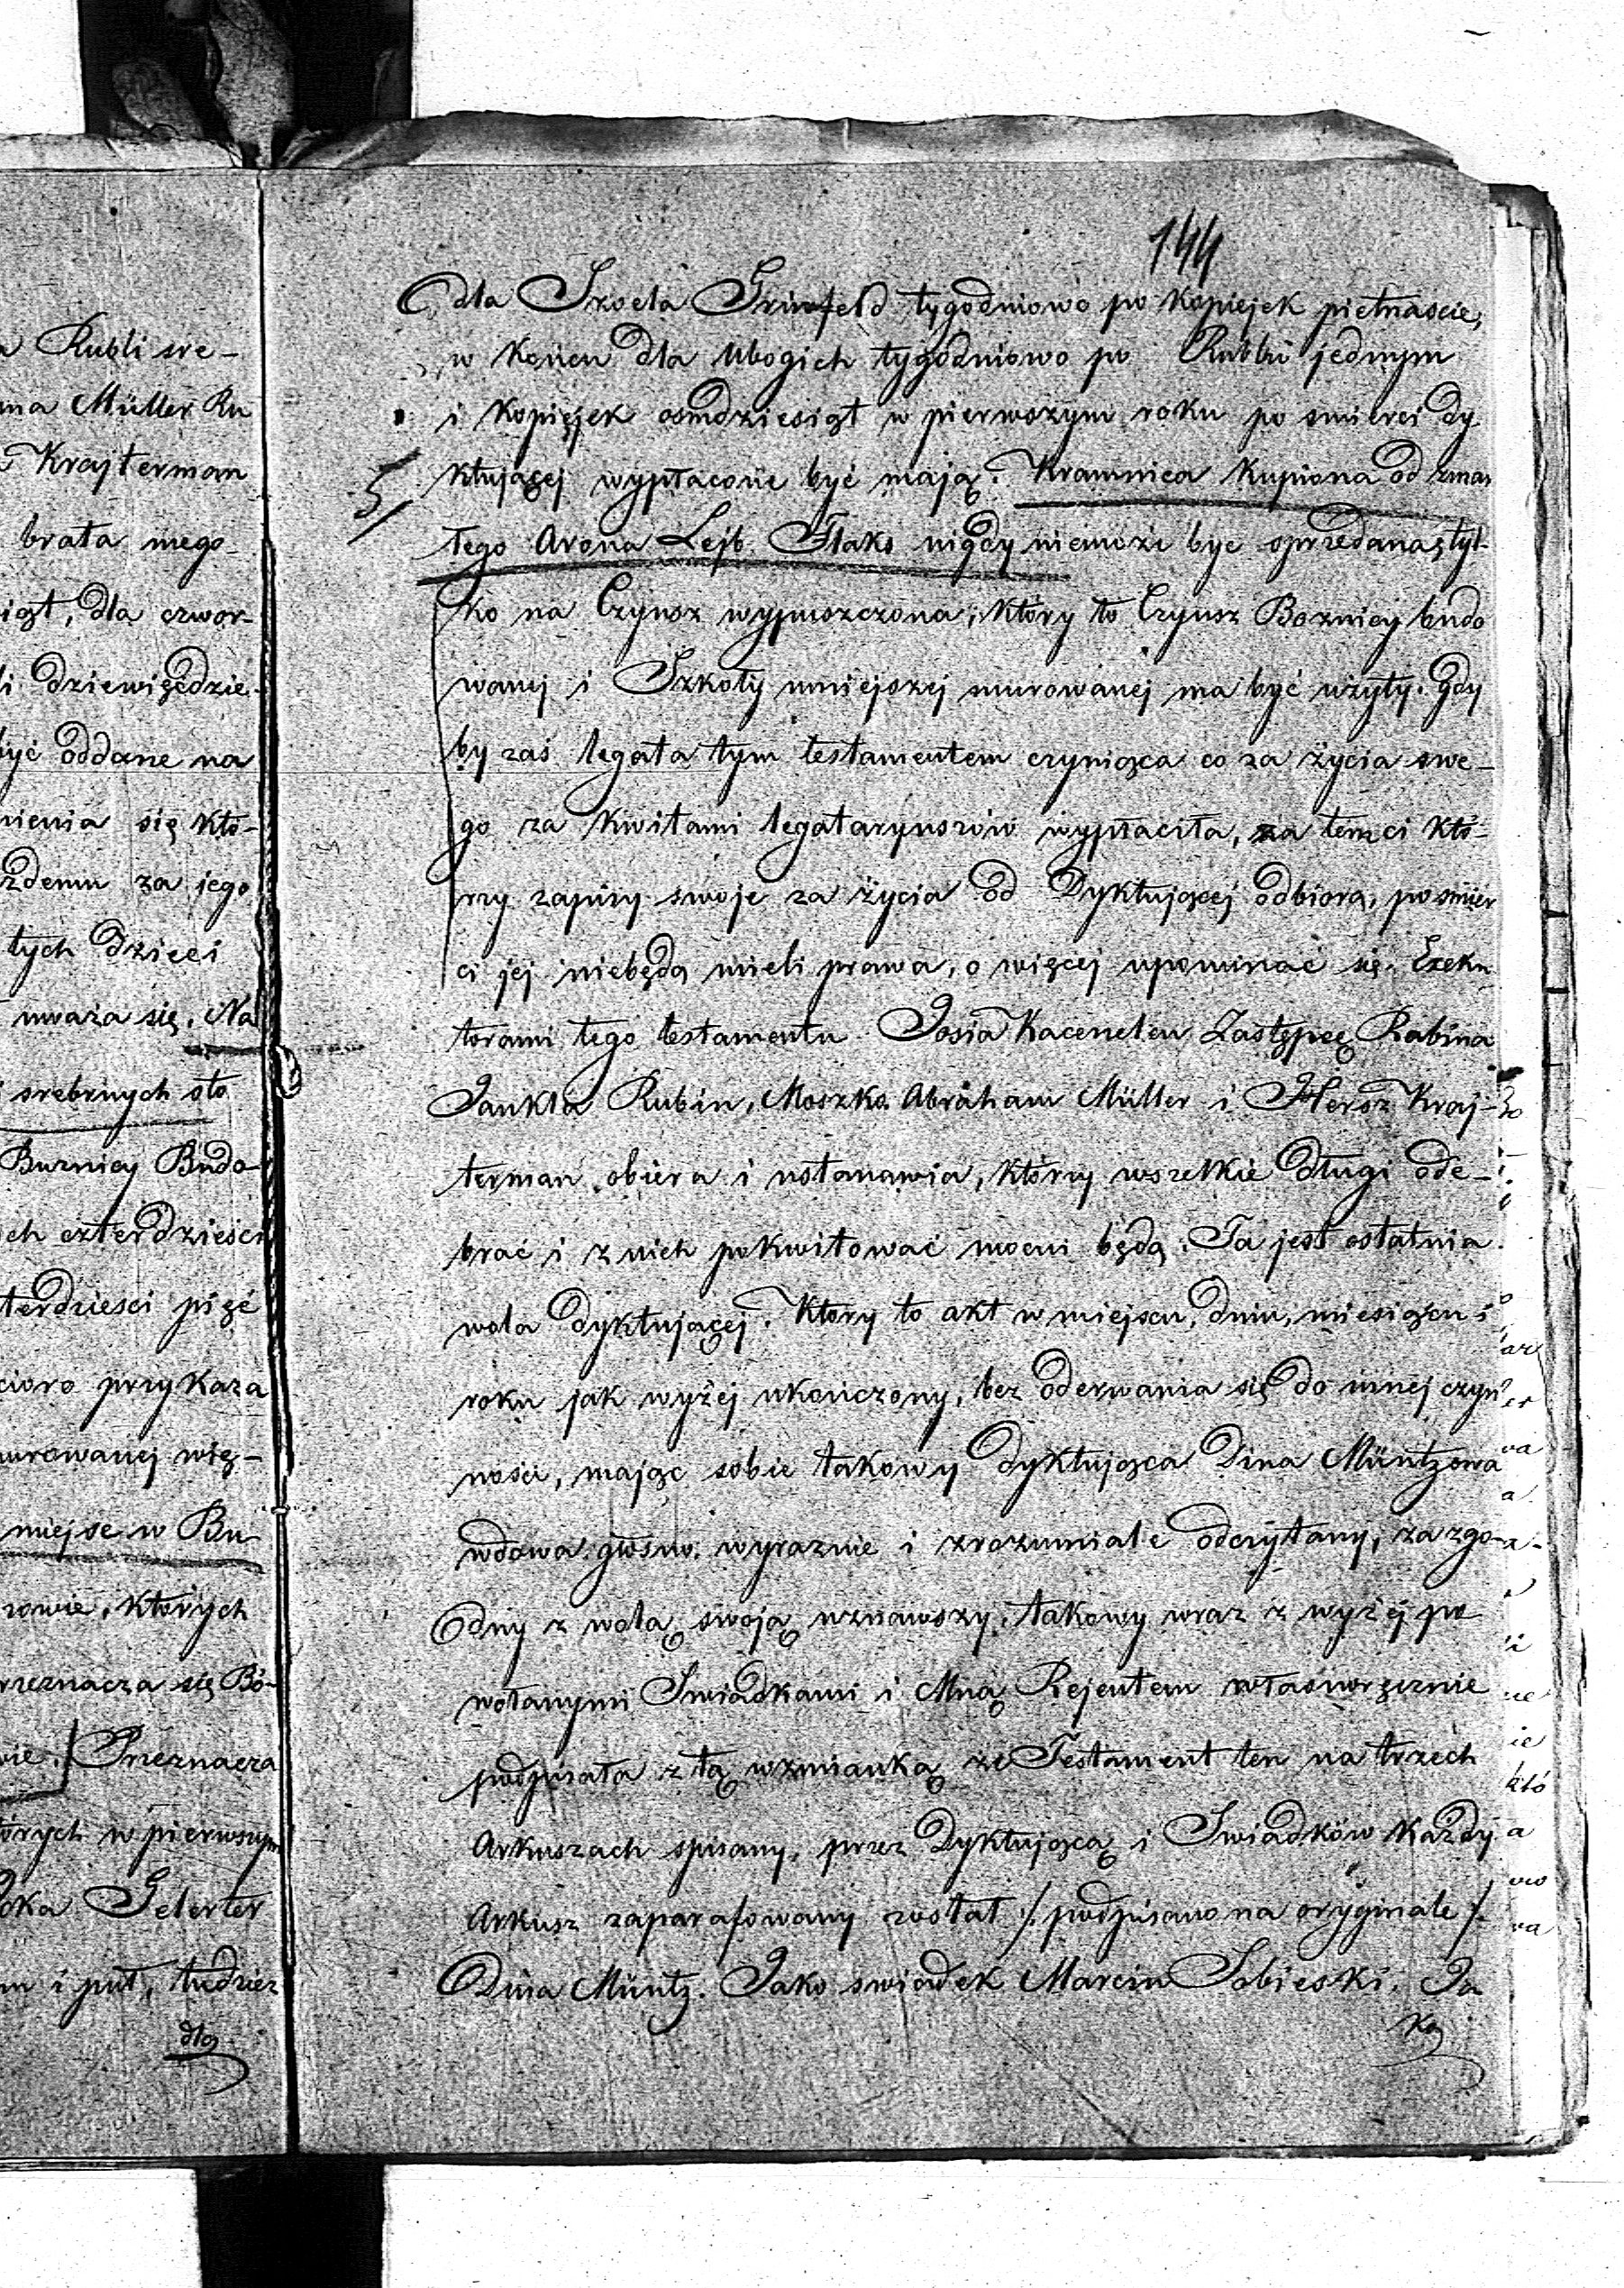 144
dla Sroela Grinfeld tygodniowo po kopiejek pietnascie,
w końcu dla Ubogich tygodniowo po Rublu jednym
i kopiejek osmdziesiąt w pierwszym roku po smierci dy
5/ ktującej wypłacone być mają. Kramnica kupiona od zmar
łego Arona Lejb Flaks nigdy niemoże byc sprzedana, tyl-
ko na Czynsz wypuszczona, który to Czynsz Boznicy budo
wanej i Szkoły mniejszej murowanej ma być użyty. Gdy
by zaś legata tym testamentem czyniąca co za życia swe-
go za kwitami legataryuszów wypłaciła, za tem ci któ-
rzy zapisy swoje za życia od Dyktującej odbiorą, po smier
ci jej niebędą mieli prawa, o więcej upominać się. Exeku
torami tego testamentu Josia Kacenelen Zastępcę Rabina
Jankla Rubin, Moszka Abraham Müller i Hersz Kraj-
terman obiera i ustanawia, którzy wszelkie długi ode-
brać i z nich pokwitować mocni będą. Ta jest ostatnia
wola dyktującej. Który to akt w miejscu, dniu, miesiącu i
roku jak wyżej ukończony, bez oderwania się do innej czyn
ności, mając sobie takowy dyktująca Dina Müntzowa
wdowa głosno, wyraznie i zrozumiale odczytany, za zgo-
dny z wolą swoją uznawszy, takowy wraz z wyżej po
wołanymi Swiadkami i Mną Rejentem własnoręcznie
podpisała z tą wzmianką że Testament ten na trzech
Arkuszach spisany, przez Dyktującą i Swiadków każdy
Arkusz zaparafowany został /. podpisano na oryginale /.
Dina Müntz. Jako swiadek Marcin Sobieski. Ja
ko
Rubli sre-
ma Müller Ru
Krajterman
brata mego
iąt, dla czwor-
li dziewięćdzie-
być oddane na
nienia się któ-
żdemu za jego
tych dzieci
uważa się. Na
srebrnych sto
Buznicy Budo-
ch czterdzieści
terdziesci pięć
cioro przykaza
urowanej wię-
miejsc w Bu-
rowie, których
rzeznacza się Bó-
wie. Przeznacza
tórych w pierwszym
dka Gelerter
m i puł, tudzież
dla